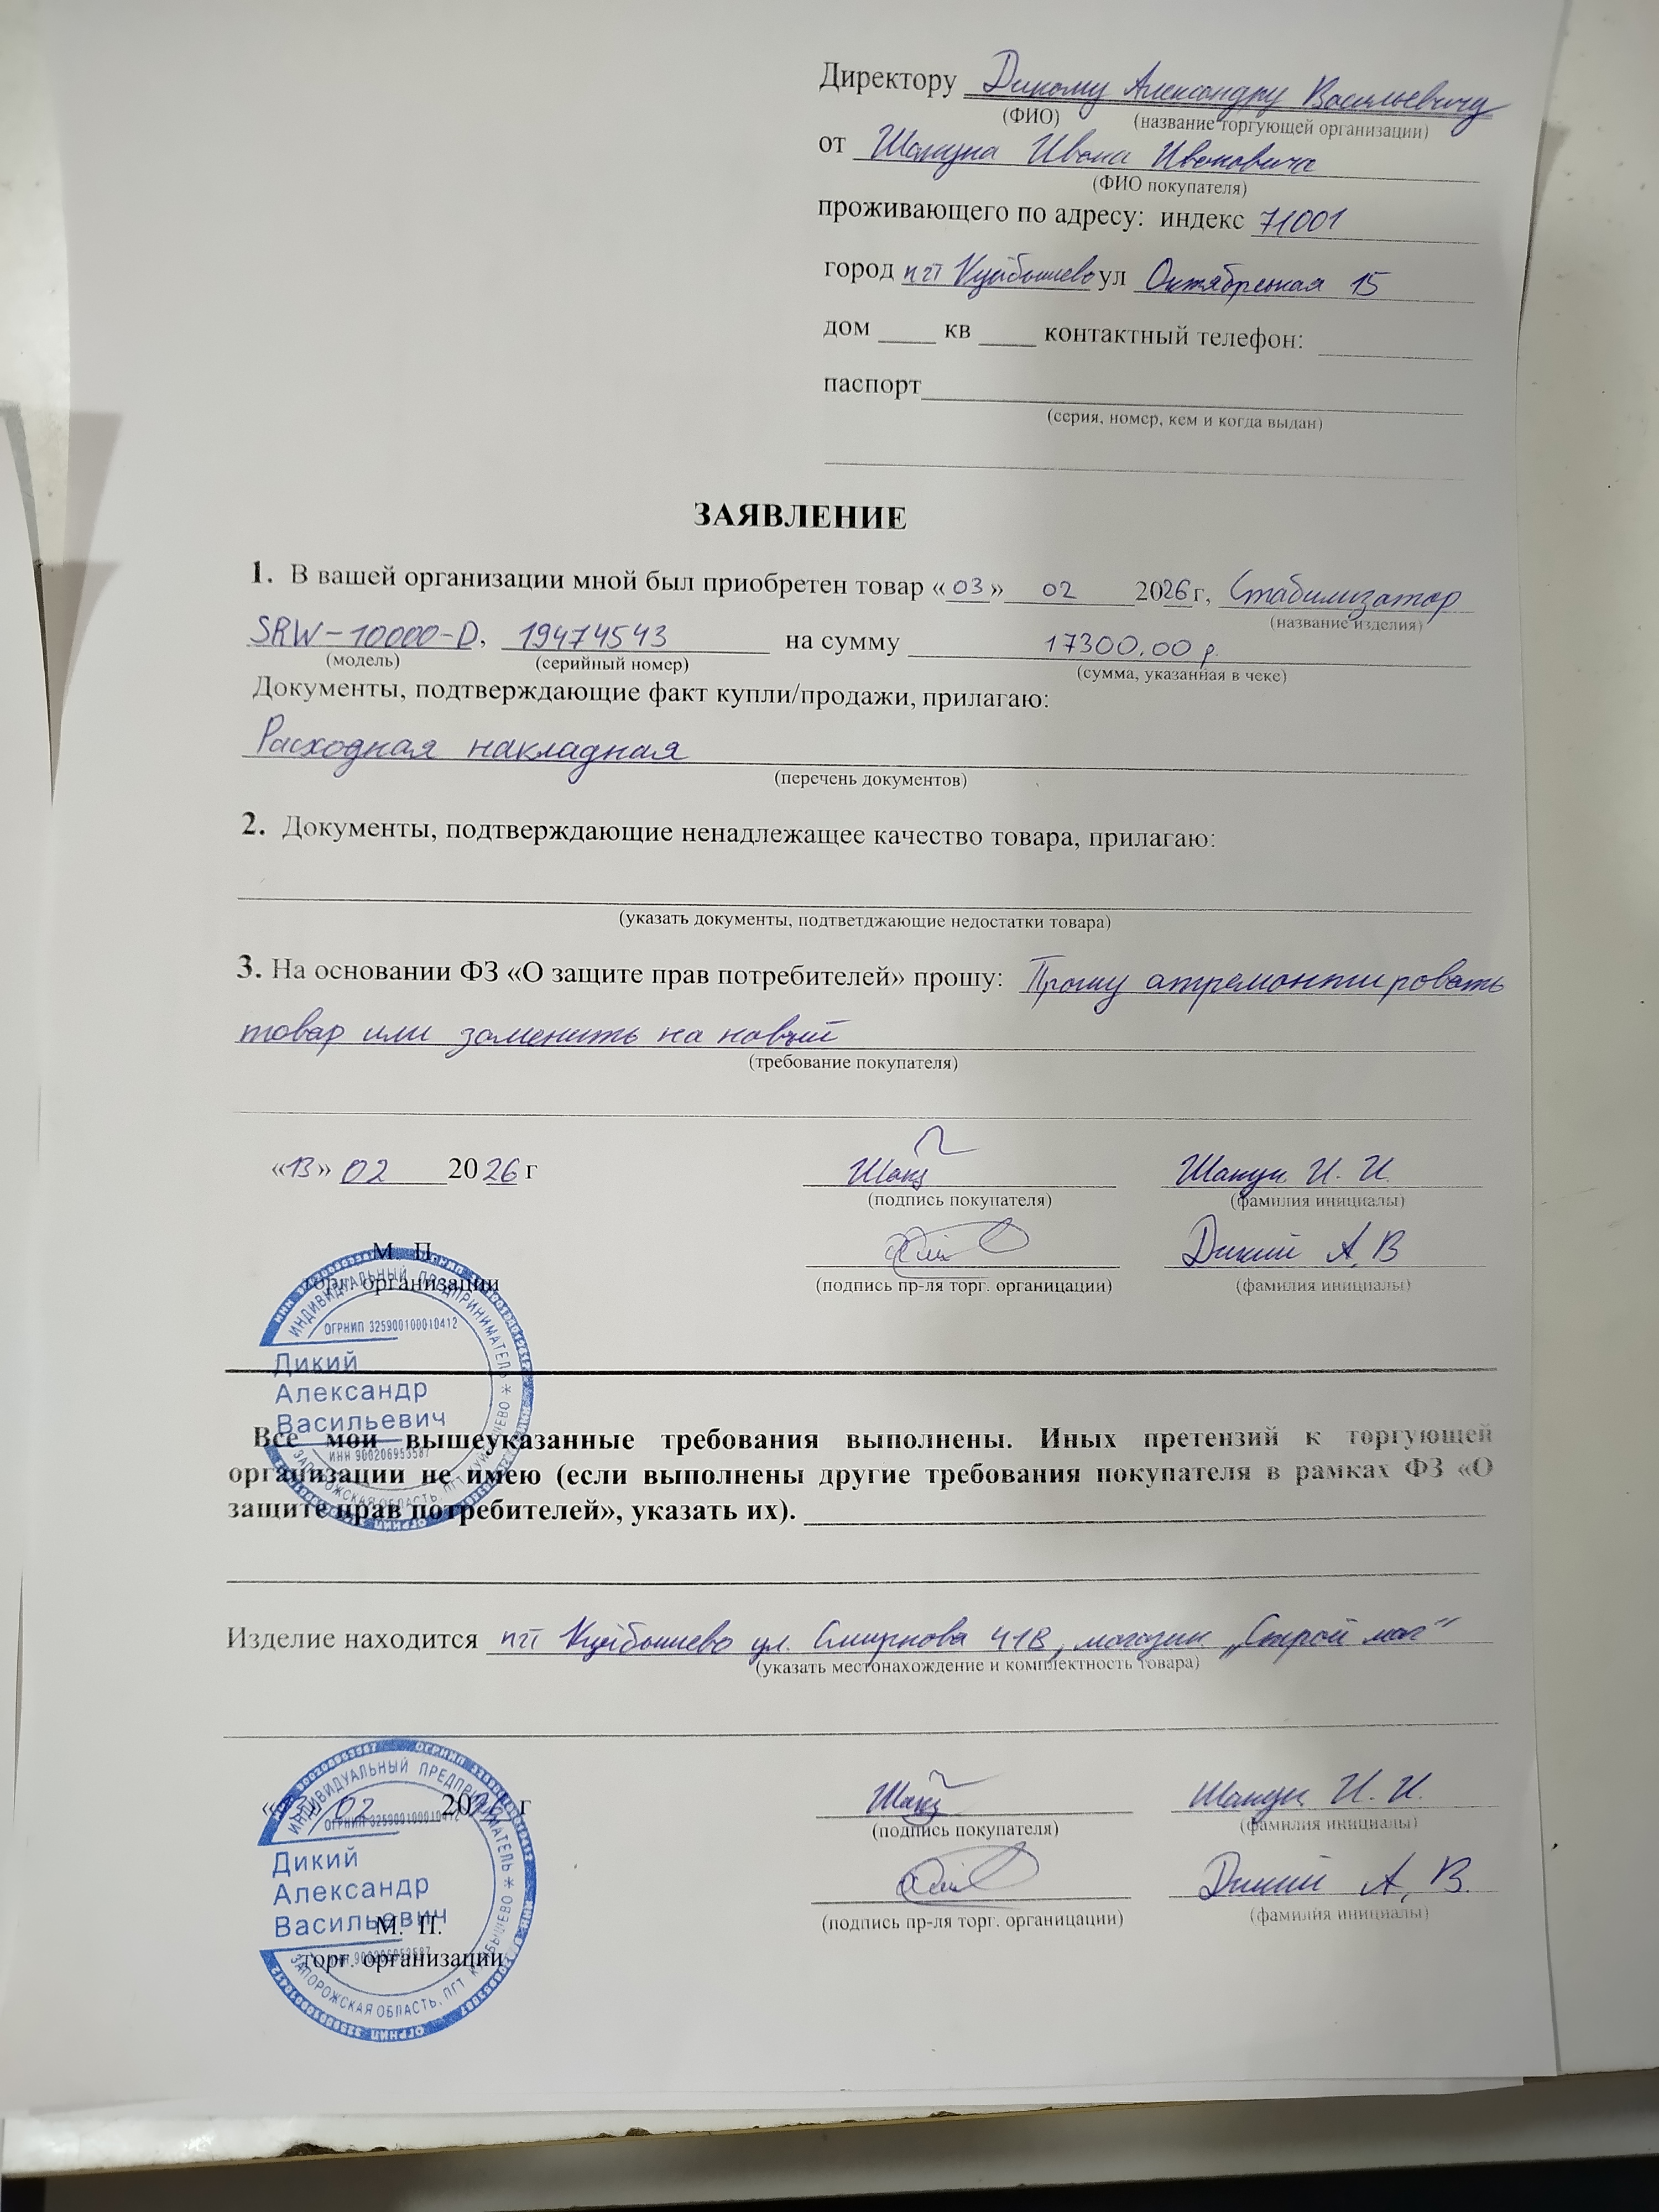 Директору Дикому Александру Васильевичу
(ФИО) (название торгующей организации)
от Шапуна Ивана Ивановича
(ФИО покупателя)
проживающего по адресу: индекс 71001
город пгт Куйбышево ул Октябрьская 15
дом ____ кв ____ контактный телефон: ____
паспорт____
(серия, номер, кем и когда выдан)
ЗАЯВЛЕНИЕ
1. В вашей организации мной был приобретен товар «03» 02 2026г, Стабилизатор
(название изделия)
SRW-10000-D, 19474543 на сумму 17300.00 р.
(модель) (серийный номер) (сумма, указанная в чеке)
Документы, подтверждающие факт купли/продажи, прилагаю:
Расходная накладная
(перечень документов)
2. Документы, подтверждающие ненадлежащее качество товара, прилагаю:
(указать документы, подтветджающие недостатки товара)
3. На основании ФЗ «О защите прав потребителей» прошу: Прошу атремонтировать
товар или заменить на новый
(требование покупателя)
«13» 02 2026 г Шапун И. И.
(подпись покупателя) (фамилия инициалы)
Дикий А, В
(подпись пр-ля торг. органицации) (фамилия инициалы)
М. П.
торг. организации
ИНДИВИДУАЛЬНЫЙ ПРЕДПРИНИМАТЕЛЬ
ОГРНИП 325900100010412
Дикий
Александр
Васильевич
ИНН 900206953587
ЗАПОРОЖСКАЯ ОБЛАСТЬ, ПГТ КУЙБЫШЕВО
Все мои вышеуказанные требования выполнены. Иных претензий к торгующей
организации не имею (если выполнены другие требования покупателя в рамках ФЗ «О
защите прав потребителей», указать их).
Изделие находится пгт Куйбышево ул. Смирнова 41В, магазин „Строй маг"
(указать местонахождение и комплектность товара)
«13» 02 2026 г Шапун И. И.
(подпись покупателя) (фамилия инициалы)
Дикий А, В.
(подпись пр-ля торг. органицации) (фамилия инициалы)
ИНДИВИДУАЛЬНЫЙ ПРЕДПРИНИМАТЕЛЬ
ОГРНИП 325900100010412
Дикий
Александр
Васильевич
ИНН 900206953587
М. П.
торг. организации
ЗАПОРОЖСКАЯ ОБЛАСТЬ, ПГТ КУЙБЫШЕВО